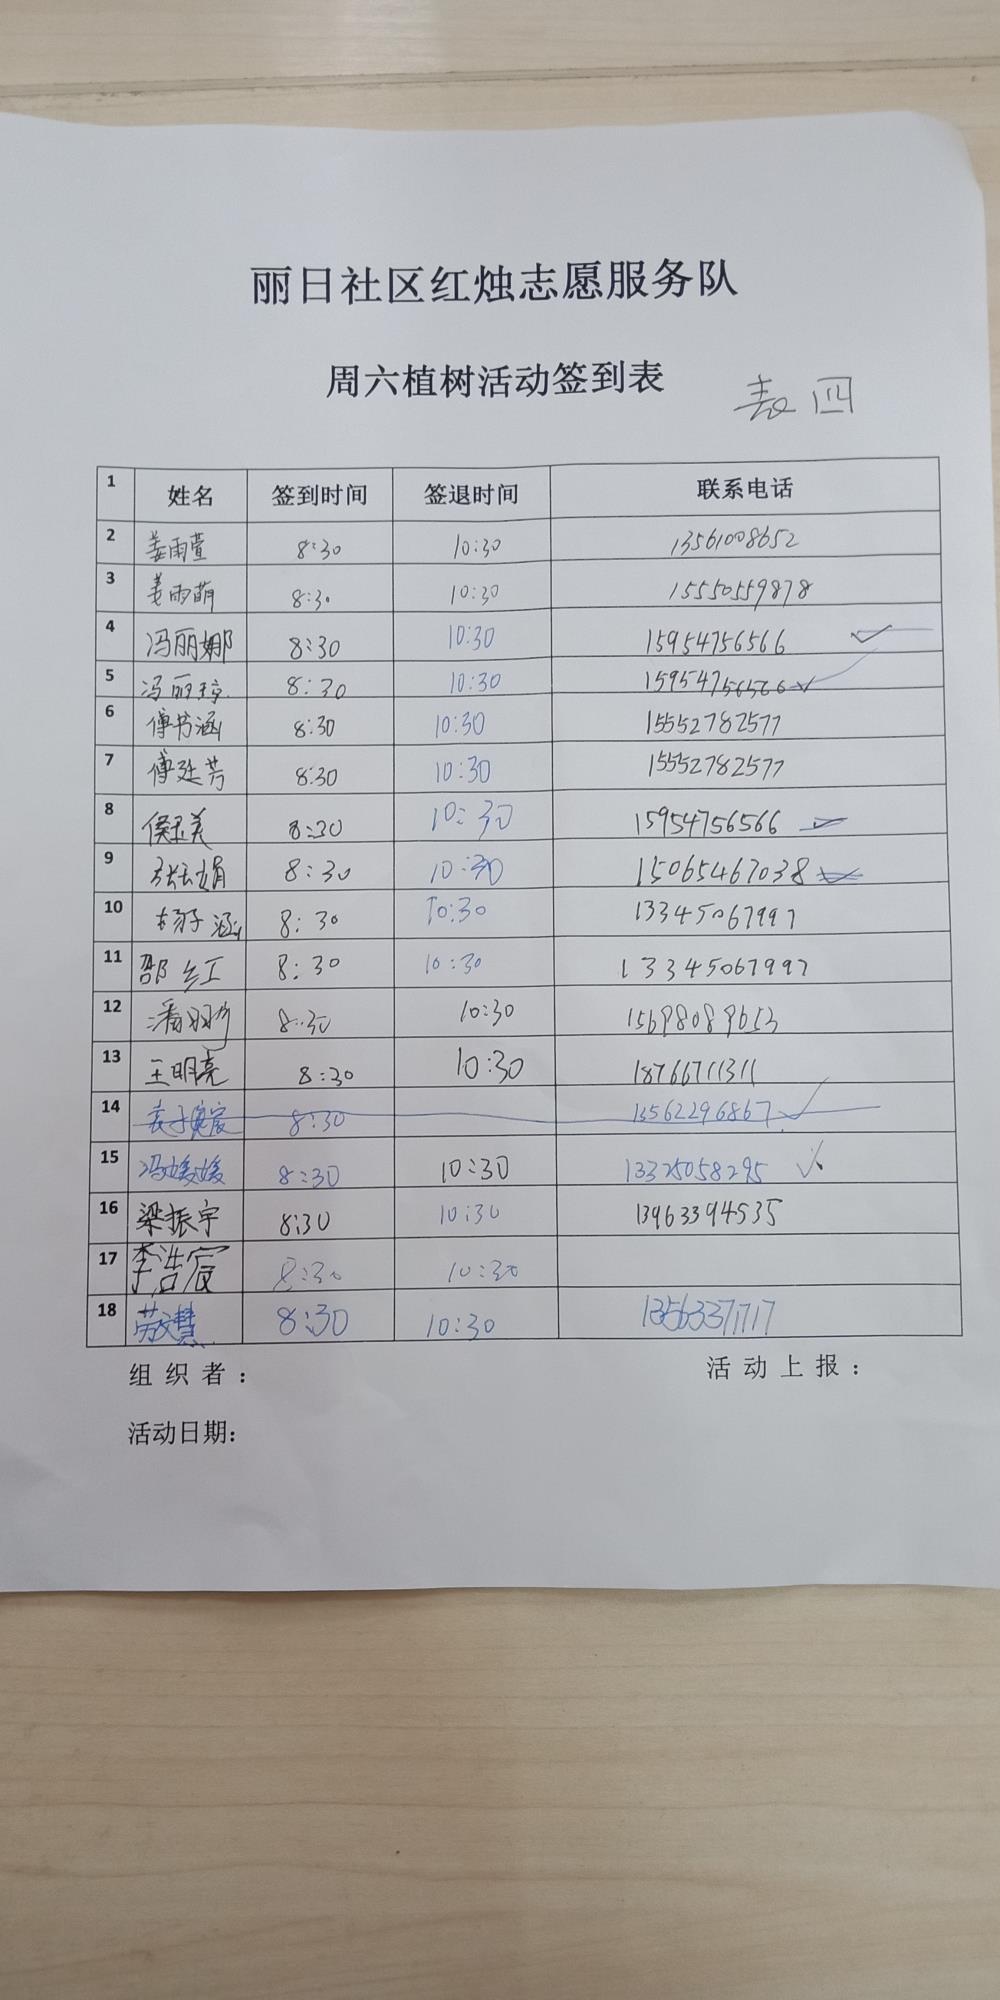 丽日社区红烛志愿服务队
周六植树活动签到表
表四
1 姓名 签到时间 签退时间 联系电话
2 姜雨萱 8:30 10:30 13561008652
3 姜雨萌 8:30 10:30 15550559878
4 冯丽娜 8:30 10:30 15954756566
5 冯丽琼 8:30 10:30 15954756566
6 傅书涵 8:30 10:30 15552782577
7 傅延芳 8:30 10:30 15552782577
8 侯玉美 8:30 10:30 15954756566
9 张娟 8:30 10:30 15065467038
10 杨子涵 8:30 10:30 13345067997
11 邵红 8:30 10:30 13345067997
12 潘 8:30 10:30 15698089653
13 王明亮 8:30 10:30 18766711311
14 袁子宸 8:30 13562296867
15 冯媛媛 8:30 10:30 13325058295
16 梁振宇 8:30 10:30 13963394535
17 李浩宸 8:30 10:30
18 劳慧 8:30 10:30 13563371717
组织者： 活动上报：
活动日期：